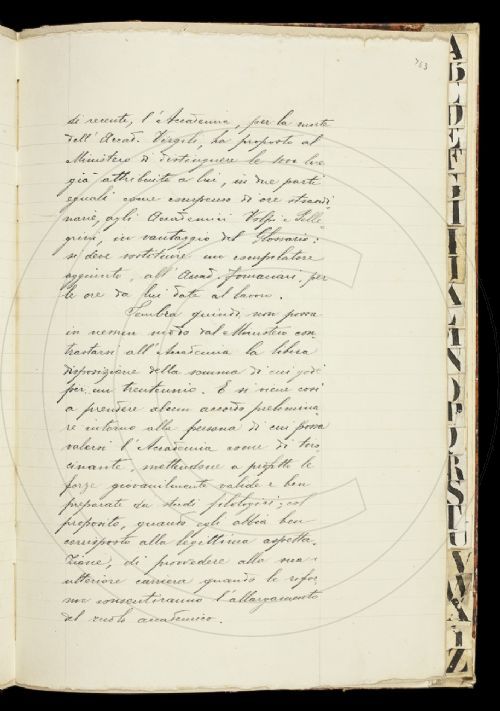 763
di recente, l'Accademia, per la morte
dell'Accad. Vergili, ha proposto al
Ministero di distinguere le
già attribuite a lui, in due parti
eguali come compenso di ore straordi
narie, agli Accademici Volpi e Pelle
grini, in vantaggio del Glossario:
si deve sostituire un compilatore
aggiunto, all'Accad. Fornaciari, per
le ore da lui date al lavoro.
Sembra quindi non possa
in nessun modo dal Ministero con
trastarsi all'Accademia la libera
disposizione della somma di cui godè
per un trentennio. E si viene così
a prendere alcun accordo prelimina
re intorno alla persona di cui possa
valersi l'Accademia come di tiro
cinante, mettendone a profitto le
forze giovanilmente valide e ben
preparate da studi filologici; col
proposito, quando egli abbia ben
corrisposto alla legittima aspetta
zione, di provvedere alla sua
ulteriore carriera quando le rifor
me consentiranno l'allargamento
del ruolo accademico.